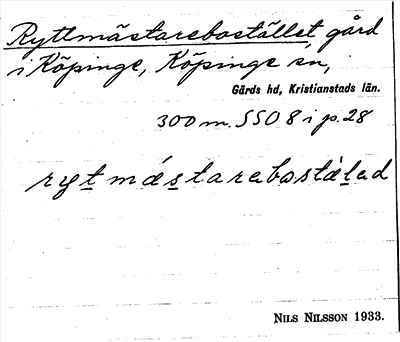 Ryttmästarebostället, gård
i Köpinge, Köpinge sn,
Gärds hd, Kristianstads län.
300 m. SSO 8 i p. 28
rytmästarebostälad
NILS NILSSON 1933.